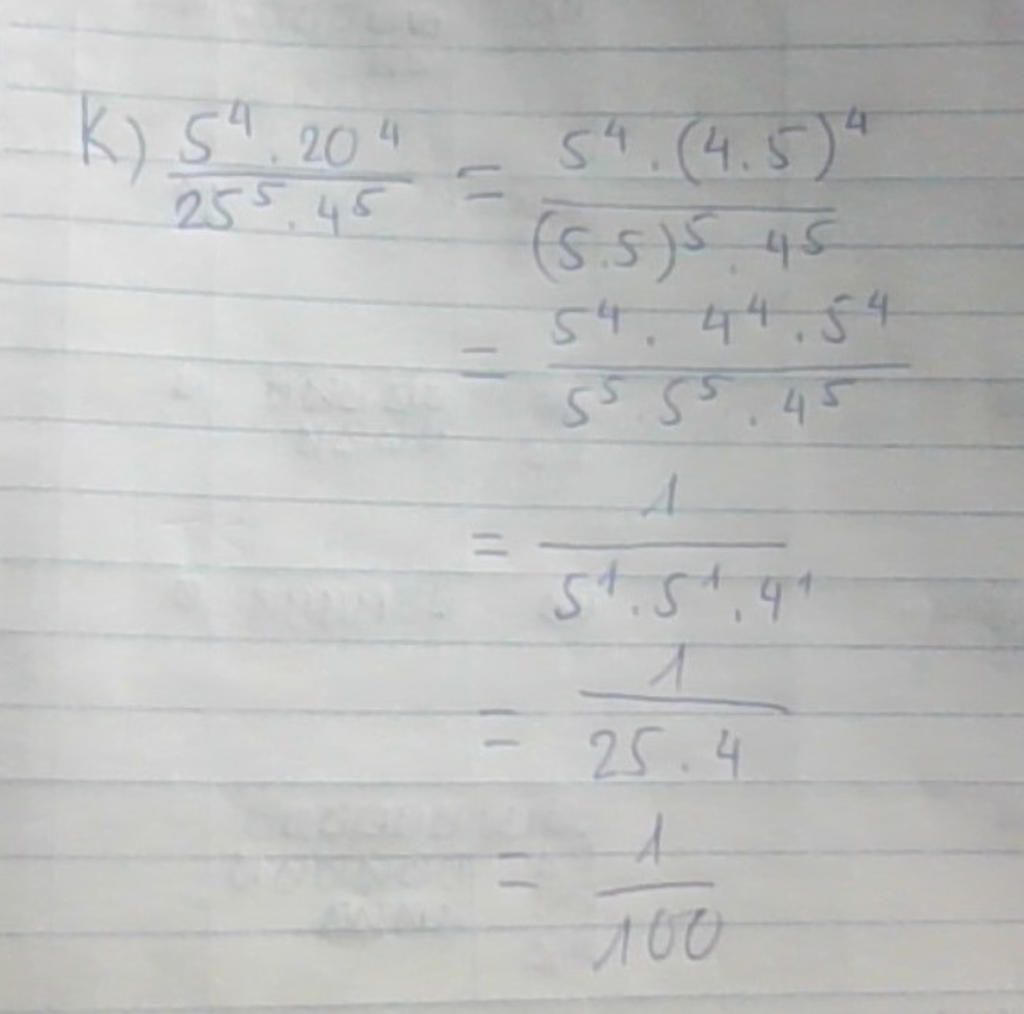 K) 5⁴ . 20⁴ / 25⁵ . 4⁵ = 5⁴ . (4.5)⁴ / (5.5)⁵ . 4⁵
= 5⁴ . 4⁴ . 5⁴ / 5⁵ 5⁵ . 4⁵
= 1 / 5¹ . 5¹ . 4¹
= 1 / 25 . 4
= 1 / 100